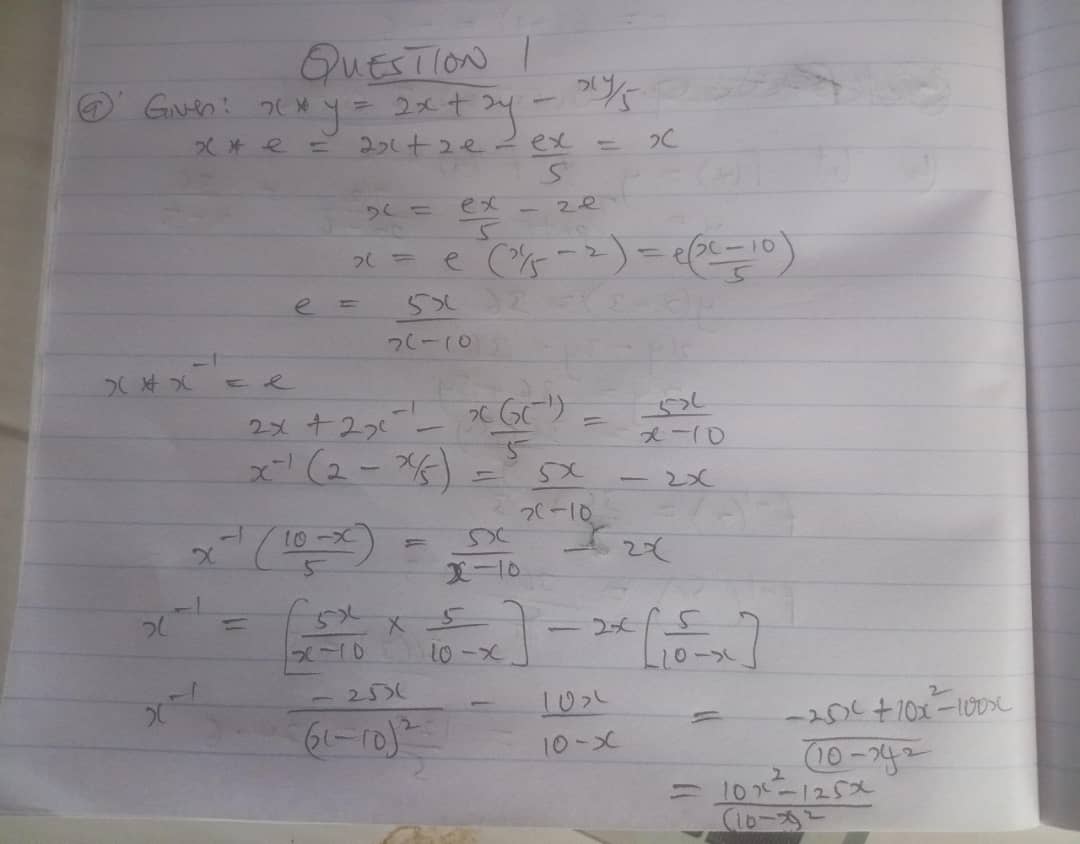 QUESTION 1
(a) Given: x * y = 2x + 2y - xy/5
x * e = 2x + 2e - ex/5 = x
x = ex/5 - 2e
x = e (x/5 - 2) = e(x-10/5)
e = 5x/x-10
x * x^-1 = e
2x + 2x^-1 - x(x^-1)/5 = 5x/x-10
x^-1 (2 - x/5) = 5x/x-10 - 2x
x^-1 (10-x/5) = 5x/x-10 - 2x
x^-1 = [5x/x-10 × 5/10-x] - 2x [5/10-x]
x^-1 -25x/(x-10)^2 - 10x/10-x = -25x + 10x^2 - 100x/(10-x)^2
= 10x^2 - 125x/(10-x)^2